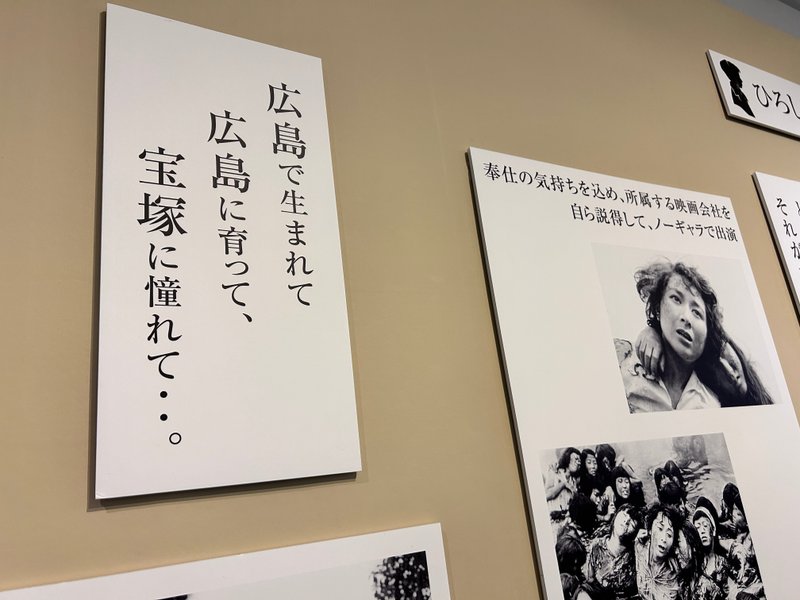 広島で生まれて
広島に育って、
宝塚に憧れて・・。
奉仕の気持ちを込め、所属する映画会社を
自ら説得して、ノーギャラで出演
ひろし
それが